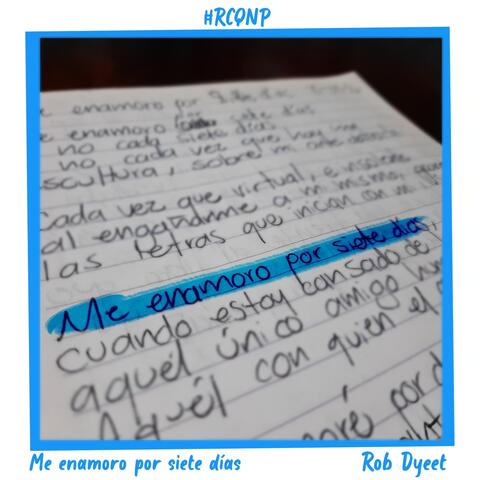 #RCQNP
e enamoro por siete días
e enamoro por siete días
no cada siete días
no cada vez que hay una
scultura, sobre mi
Cada vez que virtual, e insolente
al engañarme a mi mismo,
las letras que inician con mi
Me enamoro por siete días,
cuando estoy cansado de
aquel único amigo
Aquél con quien el
por
Me enamoro por siete días
Rob Dyeet